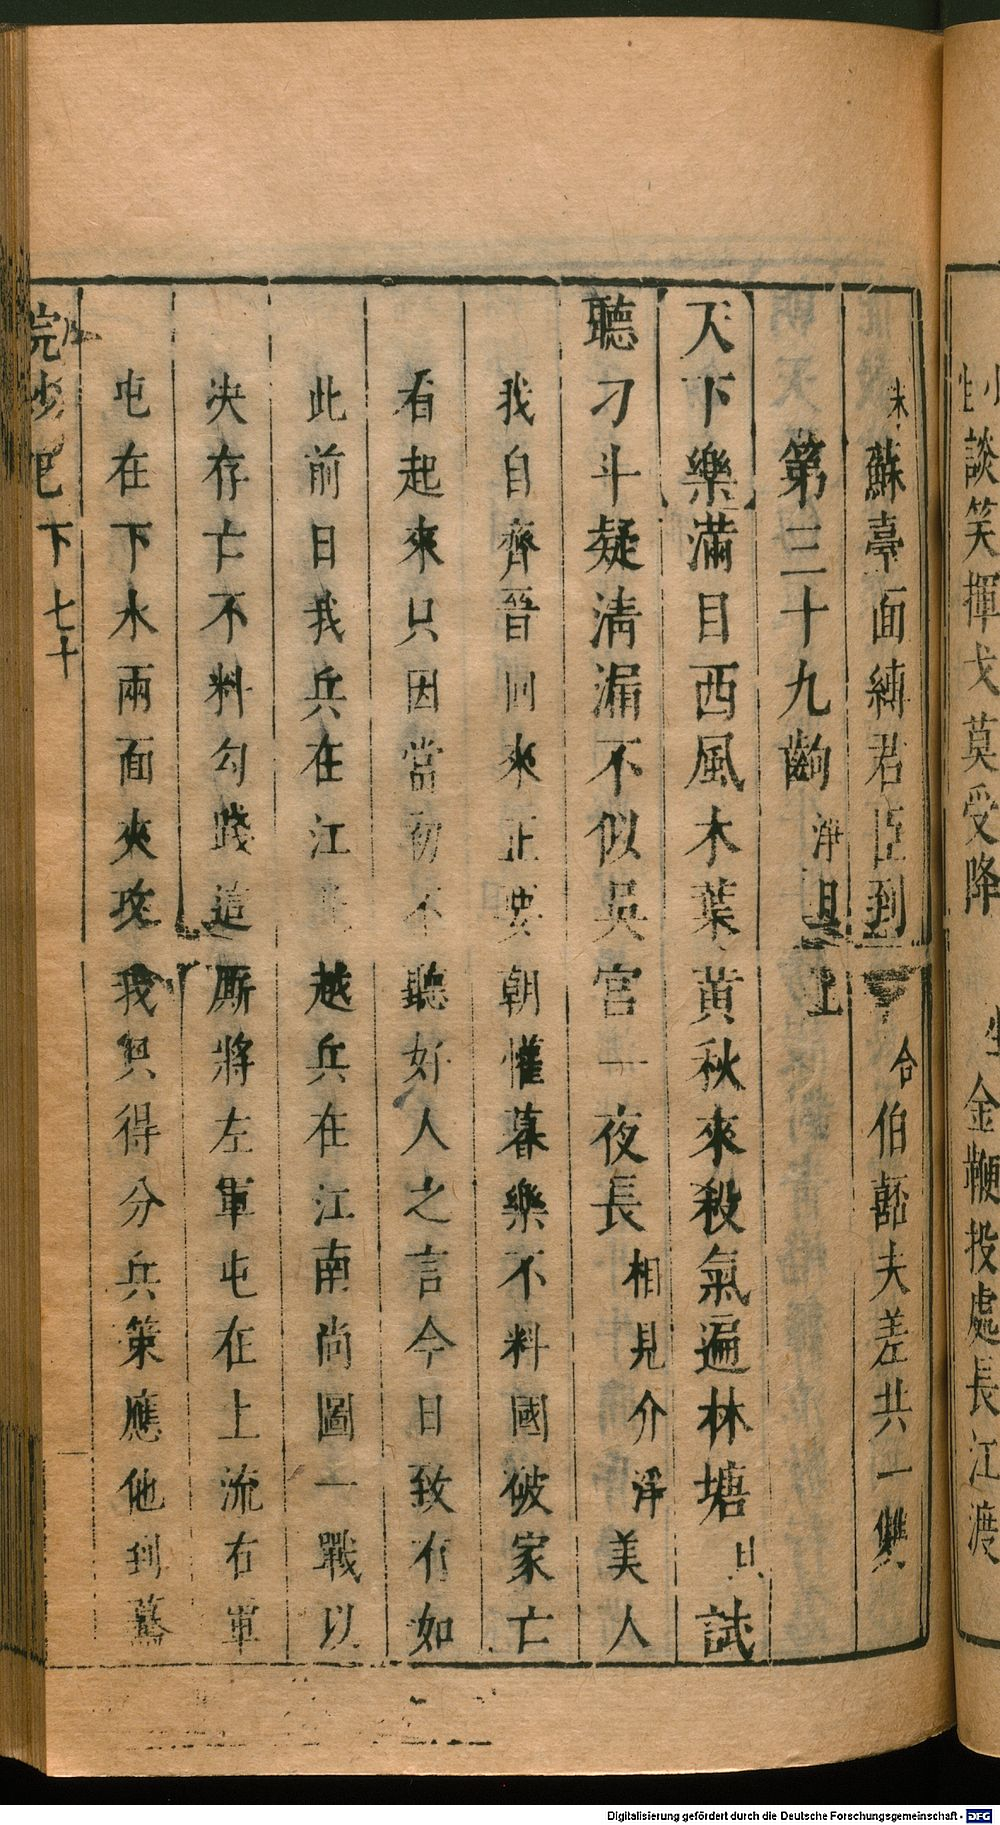 生談笑揮戈莫受降 金鞭投處長江渡
末 蘇臺面縛君臣到 合 伯嚭夫差共一雙
第三十九齣 淨旦上
天下樂 滿目西風木葉黃秋來殺氣遍林塘 旦 試
聽刁斗疑清漏不似吳宮一夜長 相見介 淨 美人
我自齊晉回來正要朝懽暮樂不料國破家亡
看起來只因當初不聽好人之言今日致有如
此前日我兵在江 越兵在江南尚圖一戰以
決存亡不料勾踐這廝將左軍屯在上流右軍
屯在下水兩面夾攻我只得分兵策應他到
浣紗記 下 七十
Digitalisierung gefördert durch die Deutsche Forschungsgemeinschaft - DFG